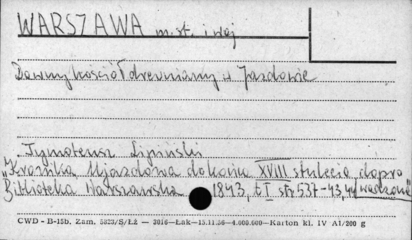 WARSZAWA m. st. i woj
Dawny kościół drewniany w Jazdowie
Tymoteusz Lipiński
"Kronika Ujazdowa do końca XVIII stulecia dopro
Biblioteka Warszawska 1843, t I str 537-43, 44 wadzona"
CWD - B-15b, Zam. 5825/S/Łż — 3016 — Łak — 15.11.56 — 4.000.000 — Karton kl. IV A1/200 g